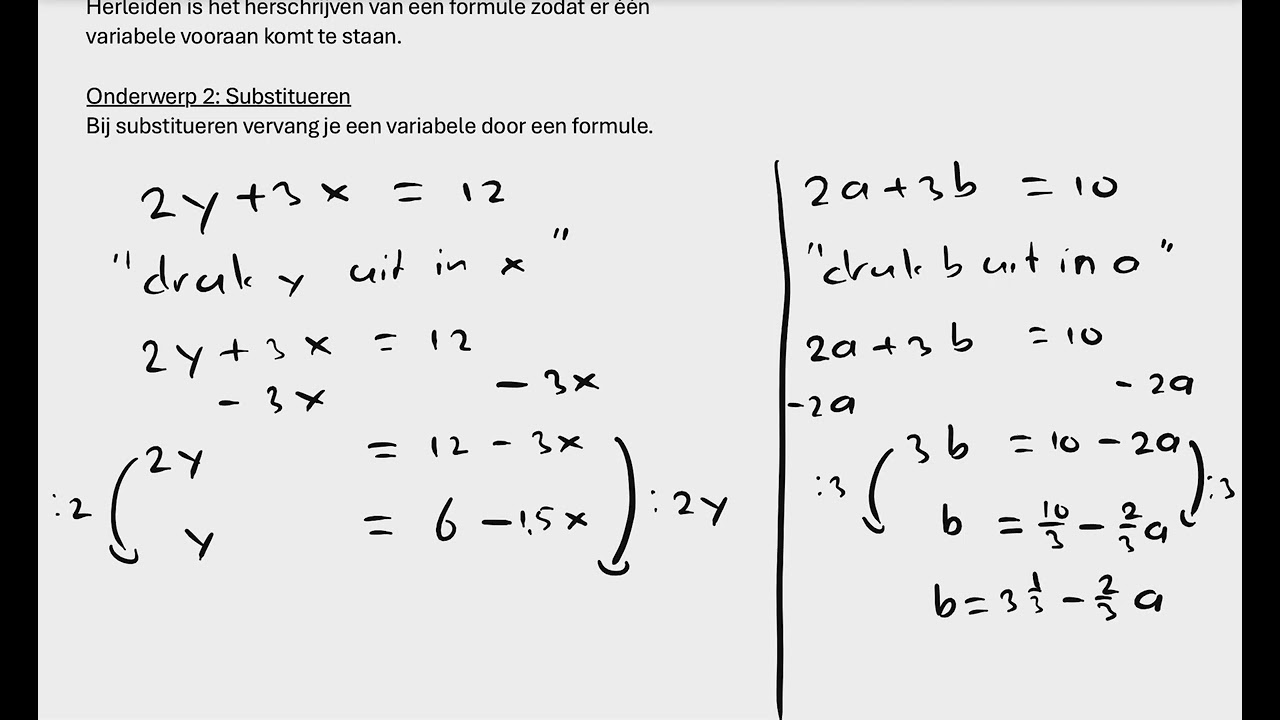 Herleiden is het herschrijven van een formule zodat er één
variabele vooraan komt te staan.
Onderwerp 2: Substitueren
Bij substitueren vervang je een variabele door een formule.
2y + 3x = 12
"druk y uit in x"
2y + 3x = 12
- 3x - 3x
2y = 12 - 3x
:2 :2y
y = 6 - 1,5x
2a + 3b = 10
"druk b uit in a"
2a + 3b = 10
-2a - 2a
3b = 10 - 2a
:3 :3
b = 10/3 - 2/3 a
b = 3 1/3 - 2/3 a